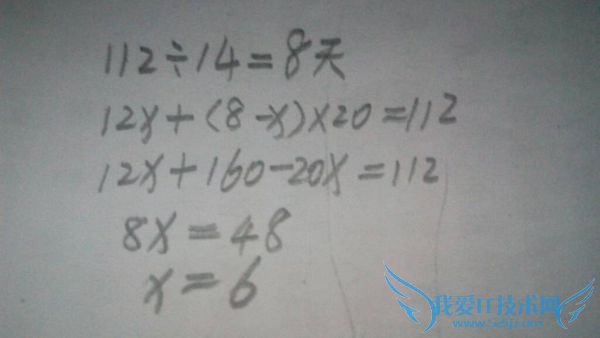 112÷14=8天
12x+(8-x)×20=112
12x+160-20x=112
8x=48
x=6
我爱IT技术网